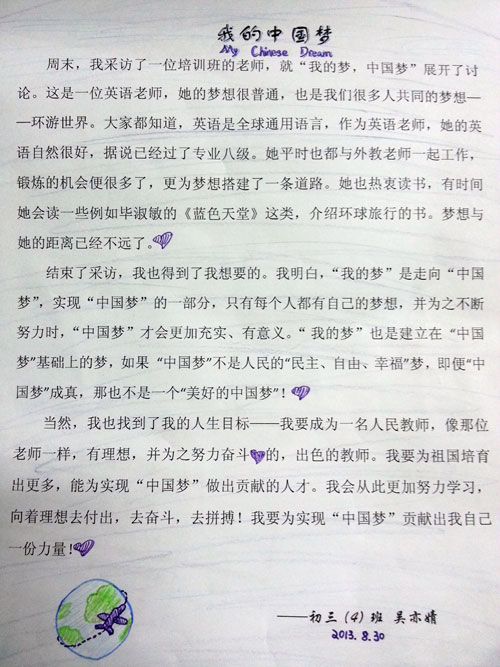 我的中国梦
My Chinese Dream
周末，我采访了一位培训班的老师，就“我的梦，中国梦”展开了讨
论。这是一位英语老师，她的梦想很普通，也是我们很多人共同的梦想—
—环游世界。大家都知道，英语是全球通用语言，作为英语老师，她的英
语自然很好，据说已经过了专业八级。她平时也都与外教老师一起工作，
锻炼的机会便很多了，更为梦想搭建了一条道路。她也热衷读书，有时间
她会读一些例如毕淑敏的《蓝色天堂》这类，介绍环球旅行的书。梦想与
她的距离已经不远了。
结束了采访，我也得到了我想要的。我明白，“我的梦”是走向“中国
梦”，实现“中国梦”的一部分，只有每个人都有自己的梦想，并为之不断
努力时，“中国梦”才会更加充实、有意义。“我的梦”也是建立在“中国
梦”基础上的梦，如果“中国梦”不是人民的“民主、自由、幸福”梦，即便“中
国梦”成真，那也不是一个“美好的中国梦”！
当然，我也找到了我的人生目标——我要成为一名人民教师，像那位
老师一样，有理想，并为之努力奋斗的，出色的教师。我要为祖国培育
出更多，能为实现“中国梦”做出贡献的人才。我会从此更加努力学习，
向着理想去付出，去奋斗，去拼搏！我要为实现“中国梦”贡献出我自己
一份力量！
——初三（4）班 吴亦婧
2013.8.30